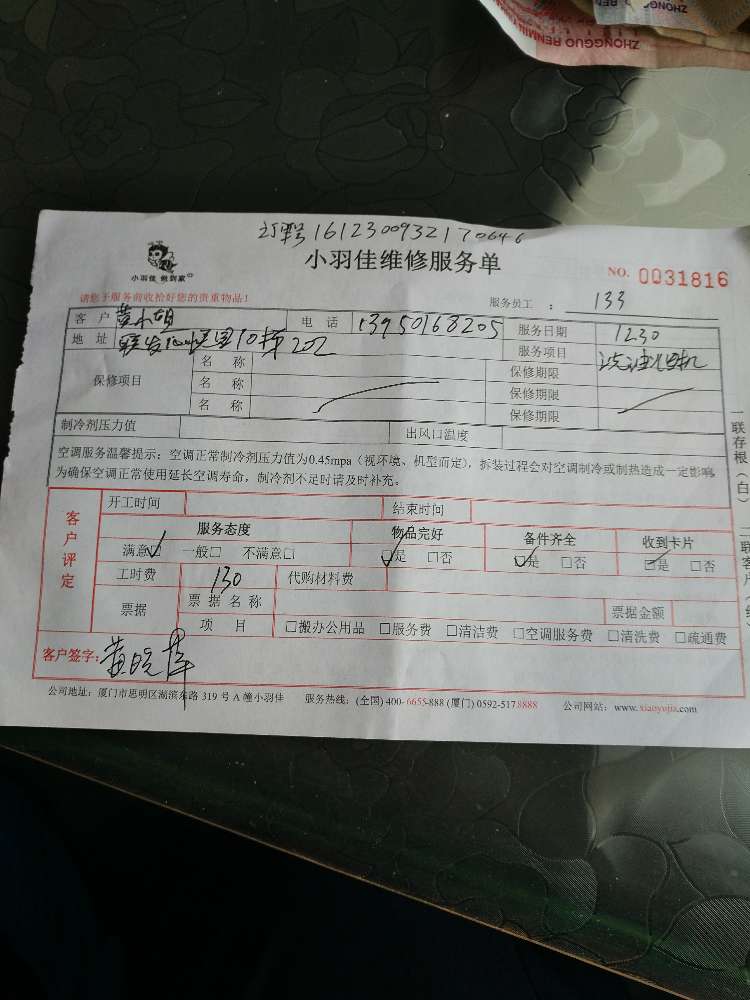 ZHONGGUO RENMIN
ZHONG
订单号 161230093217 0646
小羽佳 做到家
小羽佳维修服务单
NO. 0031816
请您于服务前收拾好您的贵重物品！
服务员工： 133
客户 黄小姐 电话 13950168205 服务日期 1230
地址 联发 10栋 202 服务项目 洗油烟机
保修项目 名称 保修期限
名称 保修期限
名称 保修期限
制冷剂压力值 出风口温度
空调服务温馨提示：空调正常制冷剂压力值为0.45mpa（视环境、机型而定），拆装过程会对空调制冷或制热造成一定影响
为确保空调正常使用延长空调寿命，制冷剂不足时请及时补充。
客户评定
开工时间 结束时间
服务态度 物品完好 备件齐全 收到卡片
满意☑ 一般□ 不满意□ ☑是 □否 ☑是 □否 ☑是 □否
工时费 130 代购材料费
票据 票据名称 票据金额
项目 □搬办公用品 □服务费 □清洁费 □空调服务费 □清洗费 □疏通费
客户签字：黄晓萍
公司地址：厦门市思明区湖滨东路 319 号 A 幢小羽佳 服务热线：(全国) 400-6655-888 (厦门) 0592-5178888 公司网站：www.xiaoyujia.com
一联存根（白）二联客户（